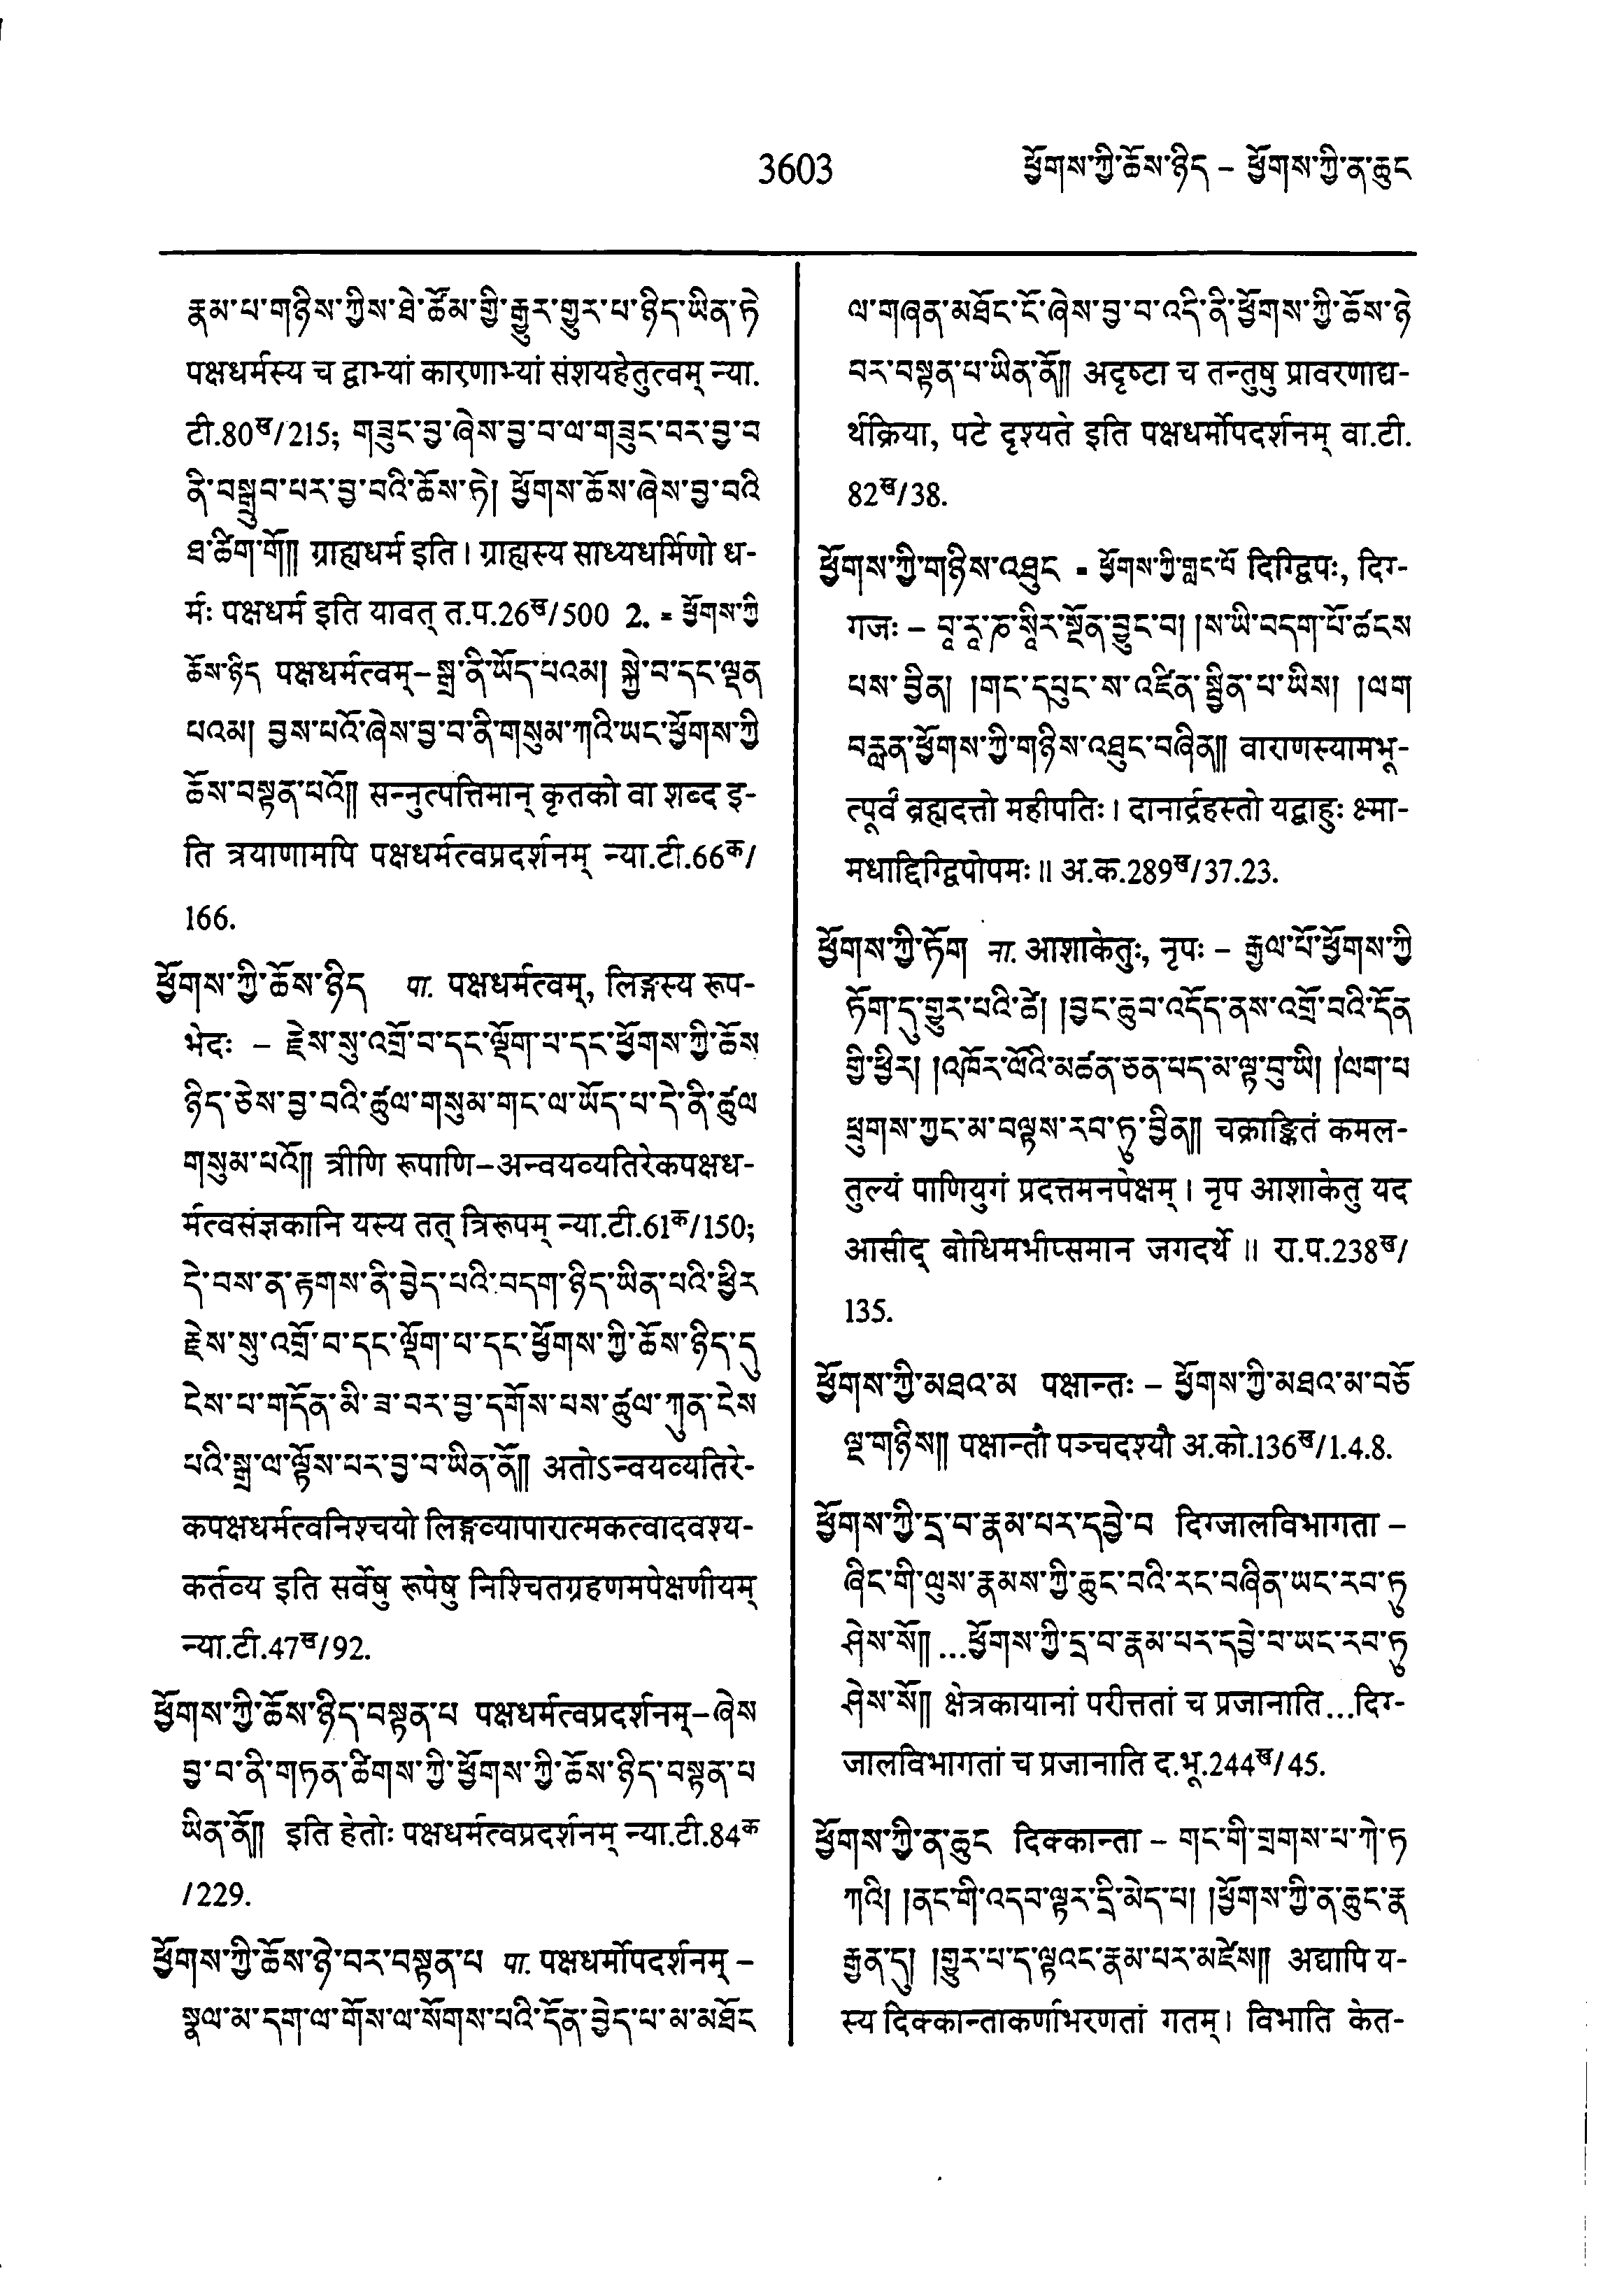 3603
ཕྱོགས་ཀྱི་ཆོས་ཉིད – ཕྱོགས་ཀྱི་ན་ཆུང
རྣམ་པ་གཉིས་ཀྱིས་ཐེ་ཚོམ་གྱི་རྒྱུར་གྱུར་པ་ཉིད་ཡིན་ཏེ
पक्षधर्मस्य च द्वाभ्यां कारणाभ्यां संशयहेतुत्वम् न्या.
टी.80ख/215; གཟུང་བྱ་ཞེས་བྱ་བ་ལ་གཟུང་བར་བྱ་བ
ནི་བསྒྲུབ་པར་བྱ་བའི་ཆོས་ཏེ། ཕྱོགས་ཆོས་ཞེས་བྱ་བའི
ཐ་ཚིག་གོ॥ ग्राह्यधर्म इति। ग्राह्यस्य साध्यधर्मिणो ध-
र्मः पक्षधर्म इति यावत् त.प.26ख/500 2. = ཕྱོགས་ཀྱི
ཆོས་ཉིད पक्षधर्मत्वम्– སྒྲ་ནི་ཡོད་པའམ། སྐྱེ་བ་དང་ལྡན
པའམ། བྱས་པའོ་ཞེས་བྱ་བ་ནི་གསུམ་ཀའི་ཡང་ཕྱོགས་ཀྱི
ཆོས་བསྟན་པའོ॥ सन्नुत्पत्तिमान् कृतको वा शब्द इ-
ति त्रयाणामपि पक्षधर्मत्वप्रदर्शनम् न्या.टी.66क/
166.
ཕྱོགས་ཀྱི་ཆོས་ཉིད पा. पक्षधर्मत्वम्, लिङ्गस्य रूप-
भेदः – རྗེས་སུ་འགྲོ་བ་དང་ལྡོག་པ་དང་ཕྱོགས་ཀྱི་ཆོས
ཉིད་ཅེས་བྱ་བའི་ཚུལ་གསུམ་གང་ལ་ཡོད་པ་དེ་ནི་ཚུལ
གསུམ་པའོ॥ त्रीणि रूपाणि–अन्वयव्यतिरेकपक्षध-
र्मत्वसंज्ञकानि यस्य तत् त्रिरूपम् न्या.टी.61क/150;
དེ་བས་ན་རྟགས་ནི་བྱེད་པའི་བདག་ཉིད་ཡིན་པའི་ཕྱིར
རྗེས་སུ་འགྲོ་བ་དང་ལྡོག་པ་དང་ཕྱོགས་ཀྱི་ཆོས་ཉིད་དུ
ངེས་པ་གདོན་མི་ཟ་བར་བྱ་དགོས་པས་ཚུལ་ཀུན་ངེས
པའི་སྒྲ་ལ་ལྟོས་པར་བྱ་བ་ཡིན་ནོ॥ अतोऽन्वयव्यतिरे-
कपक्षधर्मत्वनिश्चयो लिङ्गव्यापारात्मकत्वादवश्य-
कर्तव्य इति सर्वेषु रूपेषु निश्चितग्रहणमपेक्षणीयम्
न्या.टी.47ख/92.
ཕྱོགས་ཀྱི་ཆོས་ཉིད་བསྟན་པ पक्षधर्मत्वप्रदर्शनम्– ཞེས
བྱ་བ་ནི་གཏན་ཚིགས་ཀྱི་ཕྱོགས་ཀྱི་ཆོས་ཉིད་བསྟན་པ
ཡིན་ནོ॥ इति हेतोः पक्षधर्मत्वप्रदर्शनम् न्या.टी.84क
/229.
ཕྱོགས་ཀྱི་ཆོས་ཉེ་བར་བསྟན་པ पा. पक्षधर्मोपदर्शनम् –
སྣལ་མ་དག་ལ་གོས་ལ་སོགས་པའི་དོན་བྱེད་པ་མ་མཐོང
ལ་གཞན་མཐོང་ངོ་ཞེས་བྱ་བ་འདི་ནི་ཕྱོགས་ཀྱི་ཆོས་ཉེ
བར་བསྟན་པ་ཡིན་ནོ॥ अदृष्टा च तन्तुषु प्रावरणाद्य-
र्थक्रिया, पटे दृश्यते इति पक्षधर्मोपदर्शनम् वा.टी.
82ख/38.
ཕྱོགས་ཀྱི་གཉིས་འཐུང = ཕྱོགས་ཀྱི་གླང་པོ दिग्द्विपः, दिग्-
गजः – བཱ་རཱ་ཎ་སཱིར་སྔོན་བྱུང་བ། །ས་ཡི་བདག་པོ་ཚངས
པས་བྱིན། །གང་དཔུང་ས་འཛིན་སྦྱིན་པ་ཡིས། །ལག
བརླན་ཕྱོགས་ཀྱི་གཉིས་འཐུང་བཞིན॥ वाराणस्यामभू-
त्पूर्वं ब्रह्मदत्तो महीपतिः। दानार्द्रहस्तो यद्बाहुः क्ष्मा-
मधाद्दिग्द्विपोपमः॥ अ.क.289ख/37.23.
ཕྱོགས་ཀྱི་ཏོག ना. आशाकेतुः, नृपः – རྒྱལ་པོ་ཕྱོགས་ཀྱི
ཏོག་ཏུ་གྱུར་པའི་ཚེ། །བྱང་ཆུབ་འདོད་ནས་འགྲོ་བའི་དོན
གྱི་ཕྱིར། །འཁོར་ལོའི་མཚན་ཅན་པད་མ་ལྟ་བུ་ཡི། །ལག་པ
ཕྲུགས་ཀྱང་མ་བལྟས་རབ་ཏུ་བྱིན॥ चक्राङ्कितं कमल-
तुल्यं पाणियुगं प्रदत्तमनपेक्षम्। नृप आशाकेतु यद
आसीद् बोधिमभीप्समान जगदर्थे॥ रा.प.238ख/
135.
ཕྱོགས་ཀྱི་མཐའ་མ पक्षान्तः – ཕྱོགས་ཀྱི་མཐའ་མ་བཅོ
ལྔ་གཉིས॥ पक्षान्तौ पञ्चदश्यौ अ.को.136ख/1.4.8.
ཕྱོགས་ཀྱི་དྲ་བ་རྣམ་པར་དབྱེ་བ दिग्जालविभागता –
ཞིང་གི་ལུས་རྣམས་ཀྱི་ཆུང་བའི་རང་བཞིན་ཡང་རབ་ཏུ
ཤེས་སོ॥ ...ཕྱོགས་ཀྱི་དྲ་བ་རྣམ་པར་དབྱེ་བ་ཡང་རབ་ཏུ
ཤེས་སོ॥ क्षेत्रकायानां परीत्ततां च प्रजानाति...दिग्-
जालविभागतां च प्रजानाति द.भू.244ख/45.
ཕྱོགས་ཀྱི་ན་ཆུང दिक्कान्ता – གང་གི་གྲགས་པ་ཀེ་ཏ
ཀའི། །ནང་གི་འདབ་ལྟར་དྲི་མེད་པ། །ཕྱོགས་ཀྱི་ན་ཆུང་རྣ
རྒྱན་དུ། །གྱུར་པ་ད་ལྟའང་རྣམ་པར་མཛེས॥ अद्यापि य-
स्य दिक्कान्ताकर्णाभरणतां गतम्। विभाति केत-